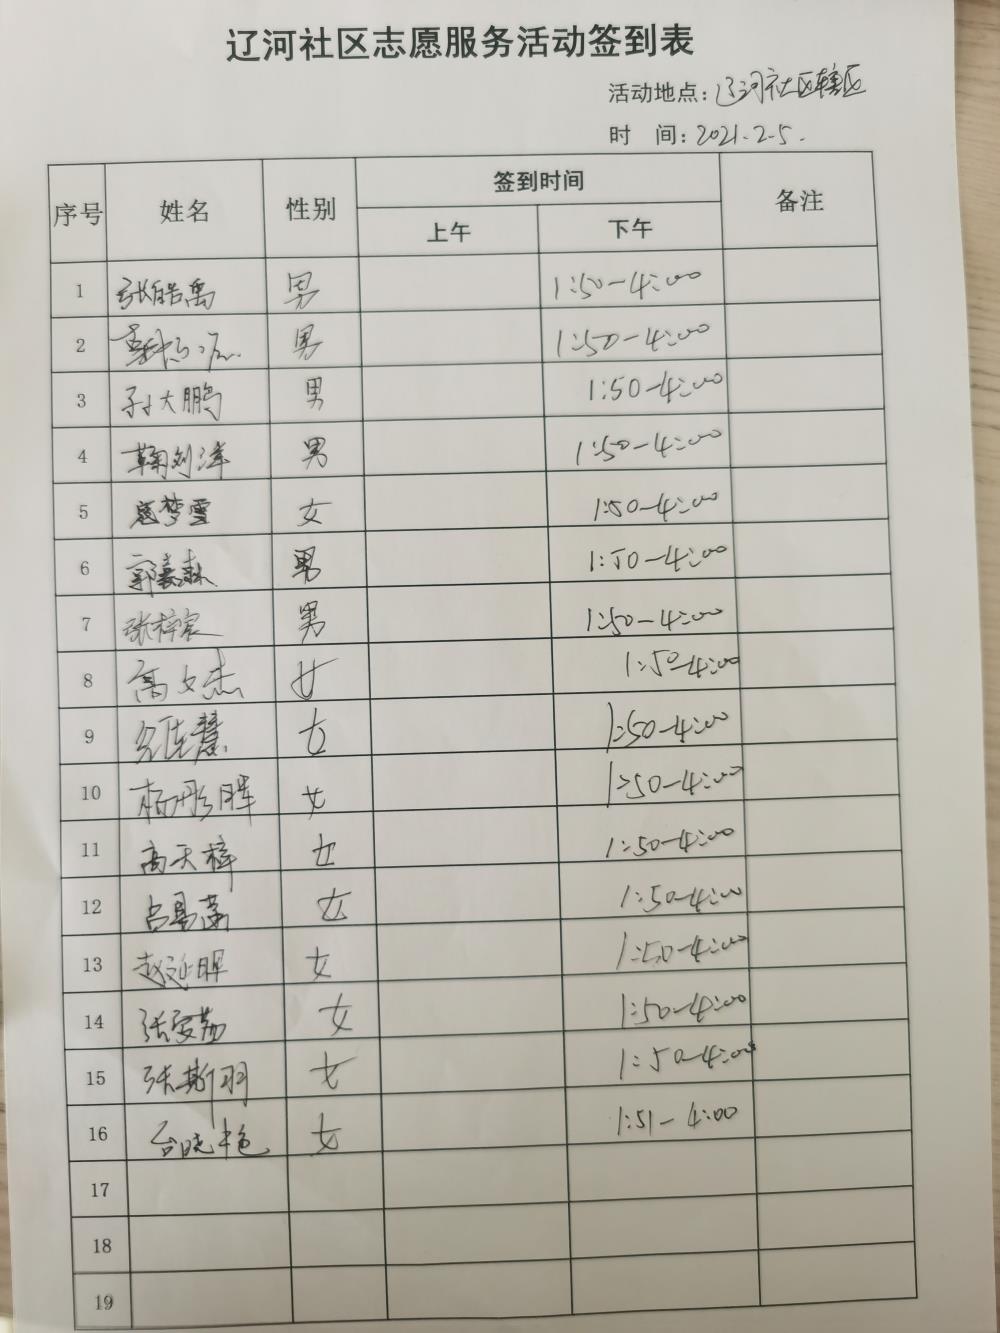 辽河社区志愿服务活动签到表
活动地点：辽河社区辖区
时 间：2021.2.5.
序号 姓名 性别 签到时间 备注
上午 下午
1 张皓禹 男 1:50-4:00
2 男 1:50-4:00
3 孙大鹏 男 1:50-4:00
4 鞠刘洋 男 1:50-4:00
5 寇梦雪 女 1:50-4:00
6 郭嘉赫 男 1:50-4:00
7 张梓宸 男 1:50-4:00
8 高文杰 女 1:50-4:00
9 慧 女 1:50-4:00
10 杨彤晖 女 1:50-4:00
11 高天梓 女 1:50-4:00
12 女 1:50-4:00
13 赵延明 女 1:50-4:00
14 张安茹 女 1:50-4:00
15 张斯羽 女 1:50-4:00
16 台晓艳 女 1:51-4:00
17
18
19